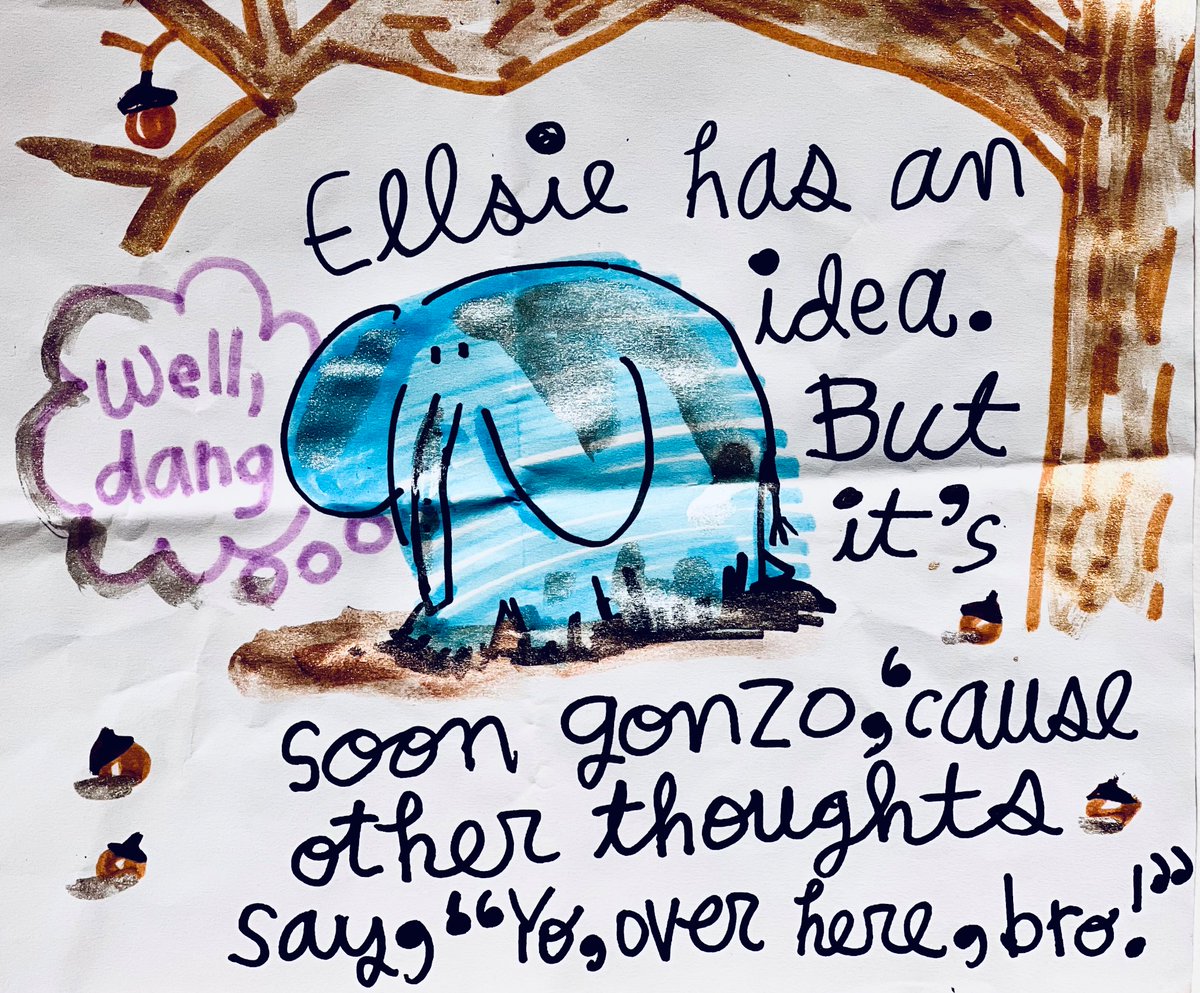 Ellsie has an
idea.
But
it's
Well,
dang
soon gonzo, 'cause
other thoughts
say, "Yo, over here, bro!"